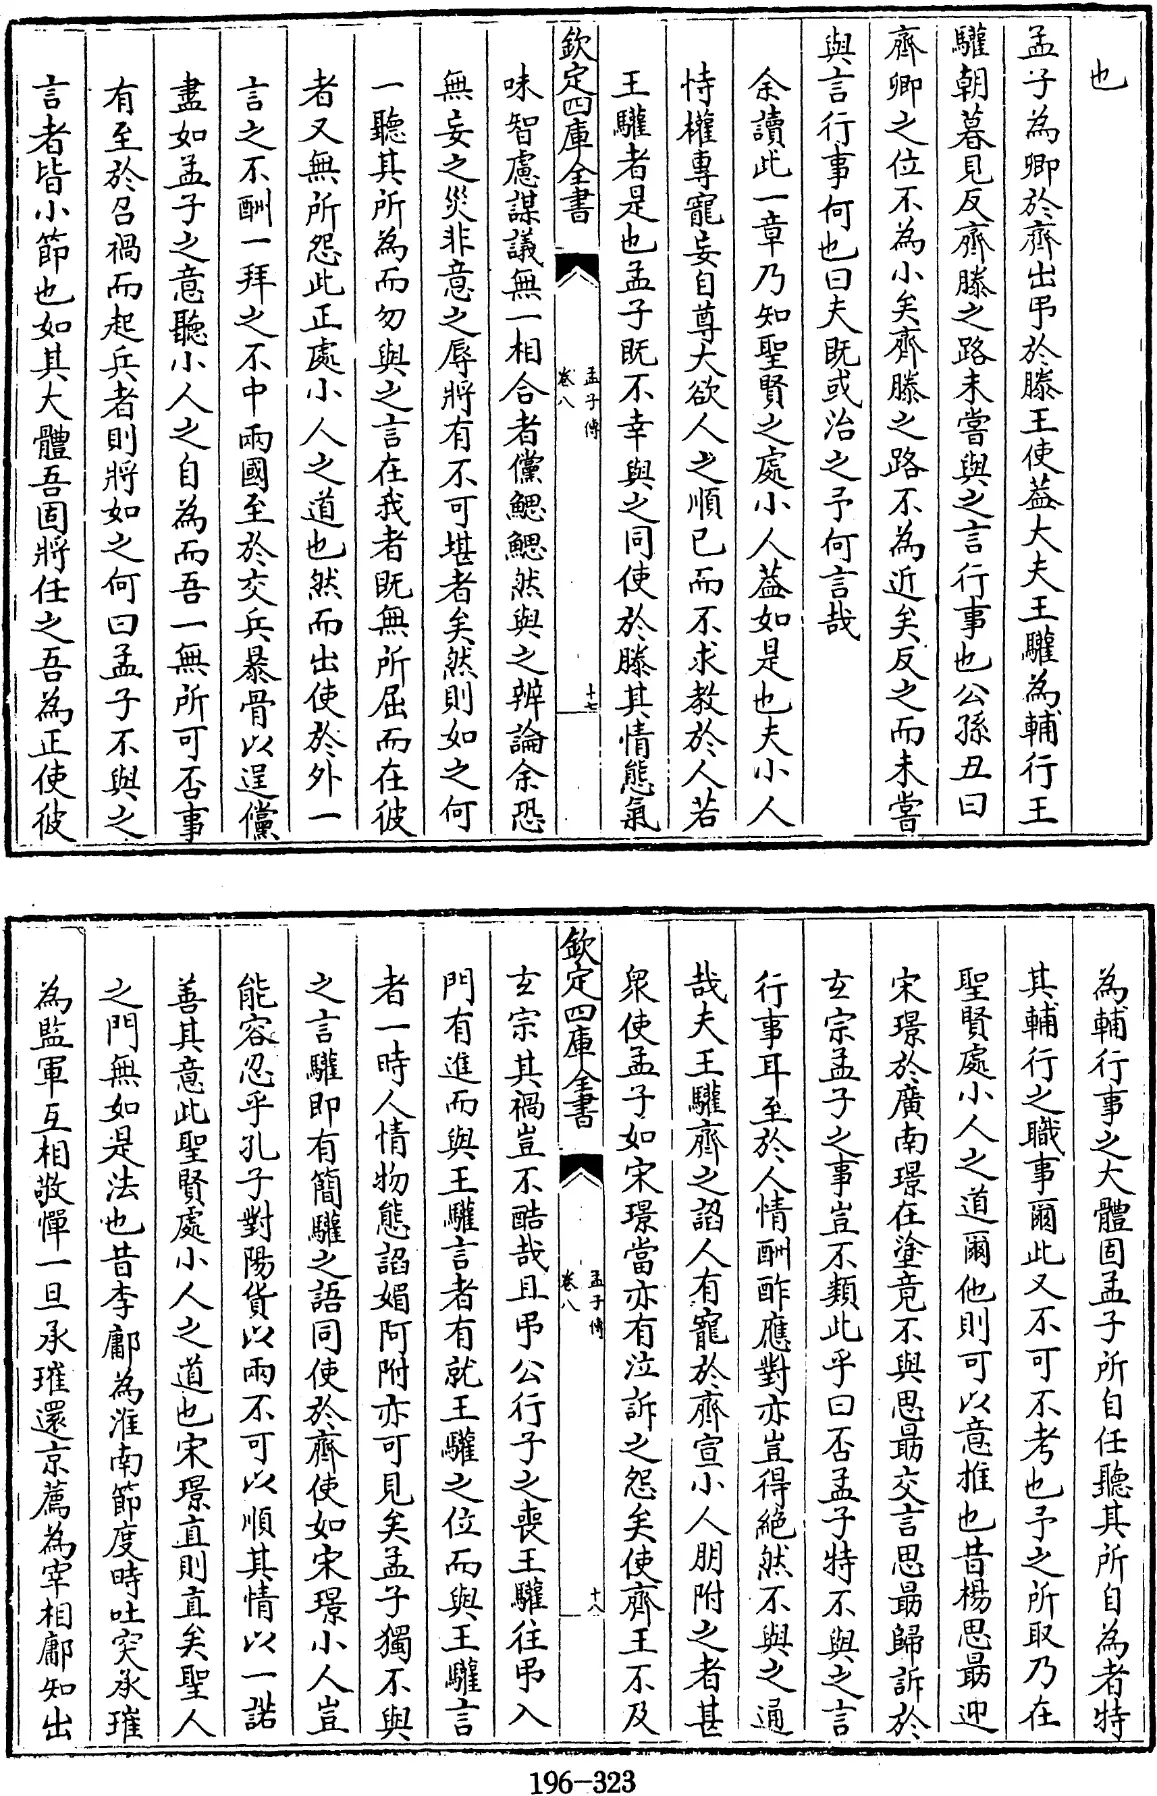 也
孟子為卿於齊出弔於滕王使葢大夫王驩為輔行王
驩朝暮見反齊滕之路未嘗與之言行事也公孫丑曰
齊卿之位不為小矣齊滕之路不為近矣反之而未嘗
與言行事何也曰夫既或治之予何言哉
余讀此一章乃知聖賢之處小人葢如是也夫小人
恃權專寵妄自尊大欲人之順已而不求教於人若
王驩者是也孟子既不幸與之同使於滕其情態氣
欽定四庫全書
孟子傳
卷八
十七
味智慮謀議無一相合者儻鰓鰓然與之辨論余恐
無妄之災非意之辱將有不可堪者矣然則如之何
一聽其所為而勿與之言在我者既無所屈而在彼
者又無所怨此正處小人之道也然而出使於外一
言之不酬一拜之不中兩國至於交兵暴骨以逞儻
盡如孟子之意聽小人之自為而吾一無所可否事
有至於召禍而起兵者則將如之何曰孟子不與之
言者皆小節也如其大體吾固將任之吾為正使彼
為輔行事之大體固孟子所自任聽其所自為者特
其輔行之職事爾此又不可不考也予之所取乃在
聖賢處小人之道爾他則可以意推也昔楊思勗迎
宋璟於廣南璟在塗竟不與思勗交言思勗歸訴於
玄宗孟子之事豈不類此乎曰否孟子特不與之言
行事耳至於人情酬酢應對亦豈得絕然不與之通
哉夫王驩齊之諂人有寵於齊宣小人朋附之者甚
衆使孟子如宋璟當亦有泣訴之怨矣使齊王不及
欽定四庫全書
孟子傳
卷八
十八
玄宗其禍豈不酷哉且弔公行子之喪王驩往弔入
門有進而與王驩言者有就王驩之位而與王驩言
者一時人情物態諂媚阿附亦可見矣孟子獨不與
之言驩即有簡驩之語同使於齊使如宋璟小人豈
能容忍乎孔子對陽貨以兩不可以順其情以一諾
善其意此聖賢處小人之道也宋璟直則直矣聖人
之門無如是法也昔李鄘為淮南節度時吐突承璀
為監軍互相敬憚一旦承璀還京薦為宰相鄘知出
196-323